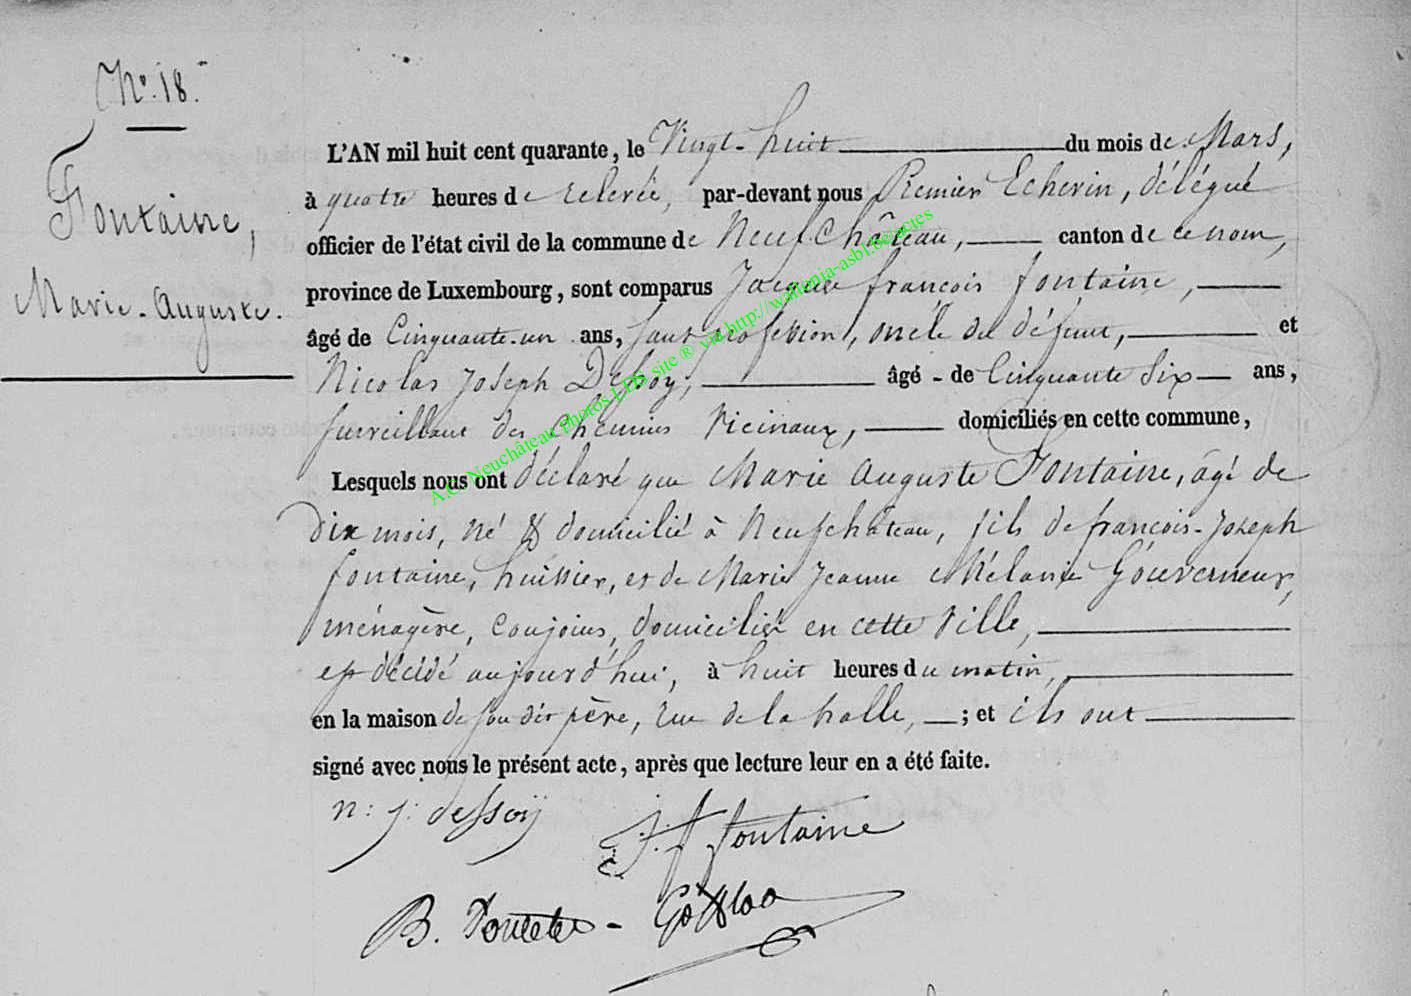 N°. 18.
Fontaine,
Marie-Auguste.
L'AN mil huit cent quarante, le Vingt-huit du mois de Mars,
à quatre heures de relevée, par-devant nous Premier Echevin, délégué
officier de l'état civil de la commune de Neufchâteau, canton de ce nom,
province de Luxembourg, sont comparus Jacques françois fontaine,
âgé de Cinquante-un ans, sans profession, oncle du défunt, et
Nicolas Joseph Dessoy, âgé - de Cinquante six ans,
surveillant des Chemins Vicinaux, domiciliés en cette commune,
Lesquels nous ont déclaré que Marie Auguste Fontaine, âgé de
Dix mois, né & domicilié à Neufchâteau, fils de françois-Joseph
fontaine, huissier, et de Marie Jeanne Mélanie Gouverneur,
ménagère, conjoins, domiciliés en cette Ville,
est décédé aujourd'hui, à huit heures du matin,
en la maison de son dit père, rue de la halle, ; et ils ont
signé avec nous le présent acte, après que lecture leur en a été faite.
n: j: dessoÿ
J. f fontaine
B. Poncelet -
A.E. Neuchâteau photos LDS site ® via http://wallonia-asbl.be/actes